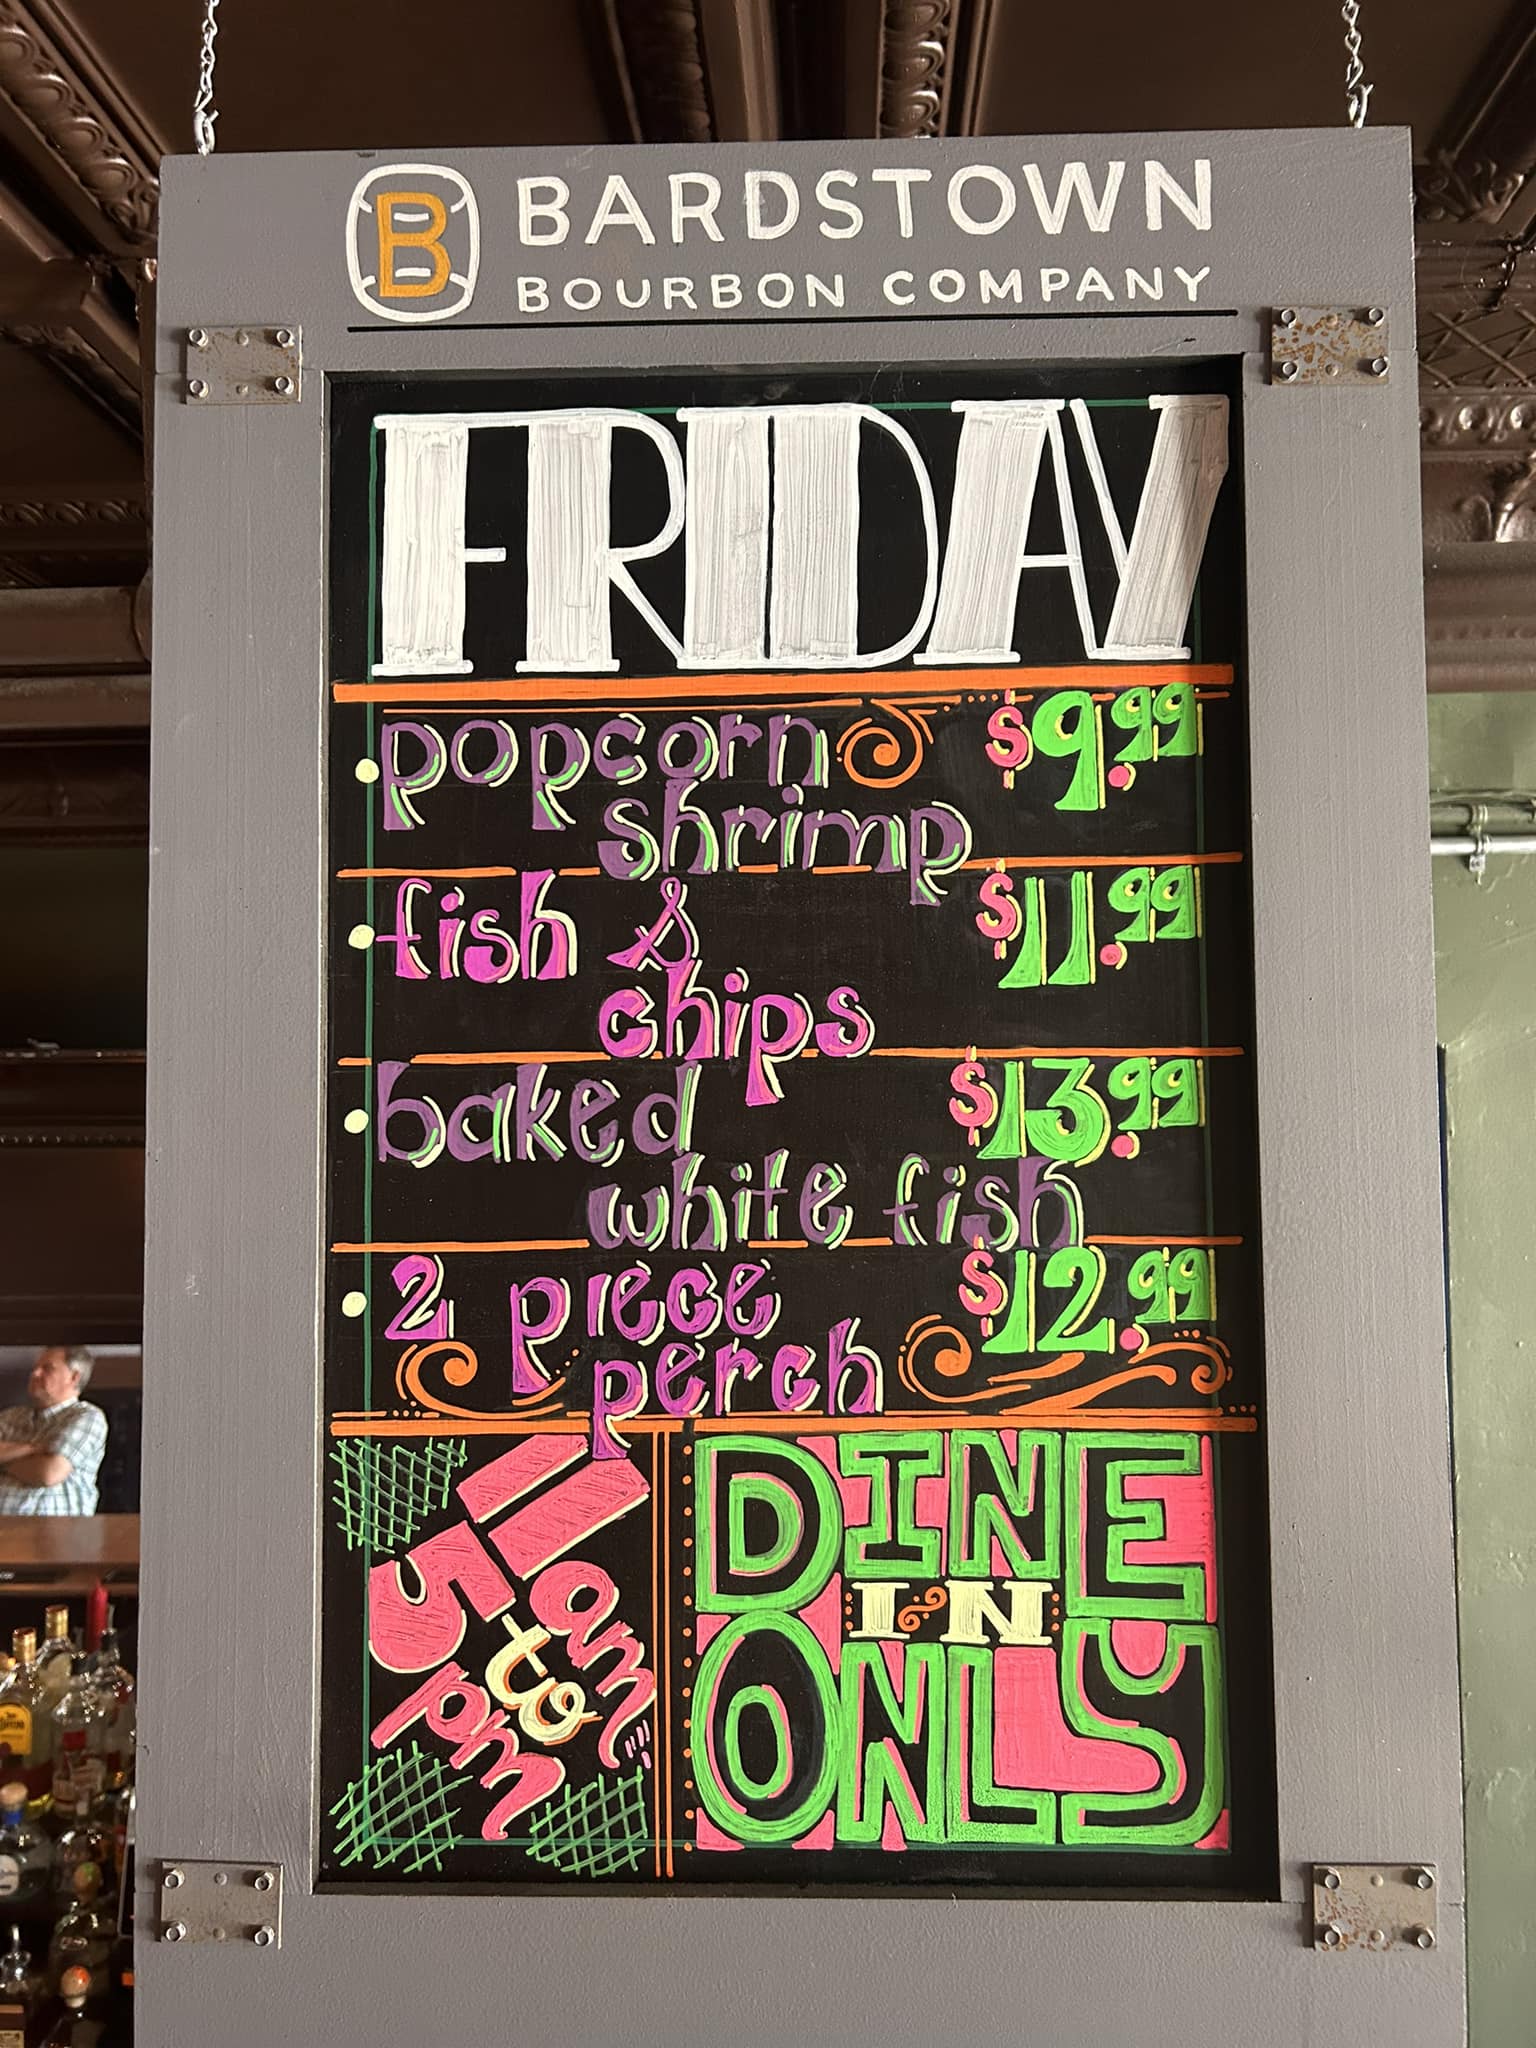 B BARDSTOWN
BOURBON COMPANY
FRIDAY
• popcorn $9.99
shrimp
• fish & $11.99
chips
• baked $13.99
white fish
• 2 piece $12.99
perch
11am
to
5pm
DINE
IN
ONLY